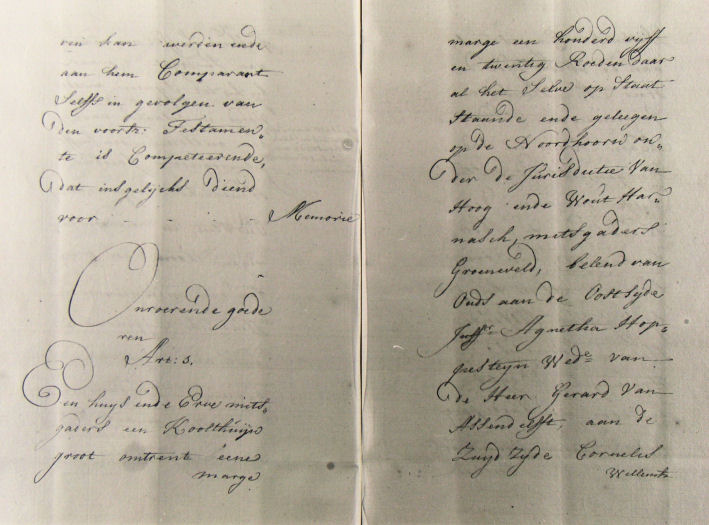 ren kan werden ende
aan hem Comparant
Selffs in gevolgen van
Den voorts: Testamen„
te is Competeerende,
Dat insgelijcks diend
voor - - - - Memorie
Onroerende goede
ren
Art: 3.
Een huys ende Erve mits„
gaders een Koolthuijn
groot omtrent eene
marge
marge een honderd vyff
en twenteg Roeden daar
al het Selve op Staat
Staande ende geleegen
op de Noordhoorn on„
Der de Jurisductie Van
Hoog ende Wout Har„
nasch, mitsgaders
Groeneveld, belend van
Ouds aan de Oostsyde
Juffr. Agnetha Hop„
pesteyn Wede van
De Heer Gerard Van
Assendelfft, aan de
Zuyd Zyde Cornelis
Willemsz